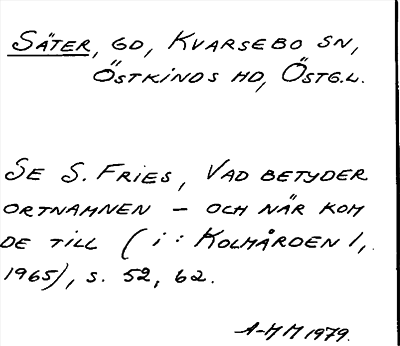 SÄTER, GD, KVARSEBO SN,
ÖSTKINDS HD, ÖSTG.L.
SE S. FRIES, VAD BETYDER
ORTNAMNEN – OCH NÄR KOM
DE TILL (i: KOLMÅRDEN 1,
1965), s. 52, 62.
A-MM 1979.